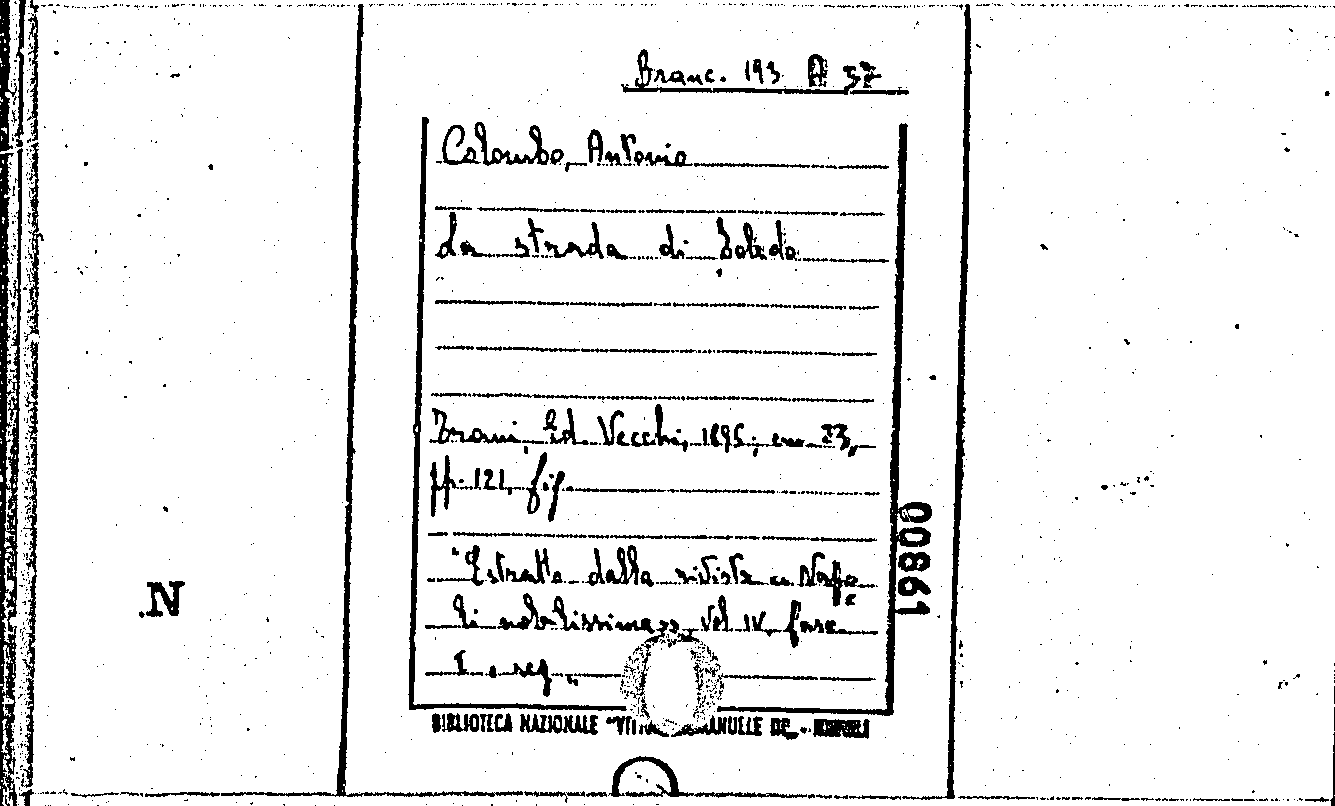 Branc. 193 A 37
Colombo, Antonio
La strada di Toledo
Trani, Ed. Vecchi, 1895; cm. 23,
pp. 121, fig.
"Estratto dalla rivista « Napo=
li nobilissima », Vol IV, fasc.
I e seg.,,
00861
N.
BIBLIOTECA NAZIONALE